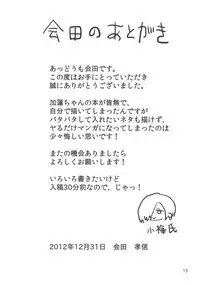 会田のあとがき
あっどうも会田です。
この度はお手にとっていただき
誠にありがとうございました。
加蓮ちゃんの本が皆無で、
自分で描いてしまったんですが
バタバタして入れたいネタも描けず、
ヤるだけマンガになってしまったのは
少々悔しい思いです！
またの機会ありましたら
よろしくお願いします！
いろいろ書きたいけど
入稿30分前なので、じゃっ！
小梅氏
2012年12月31日　会田　孝信
19